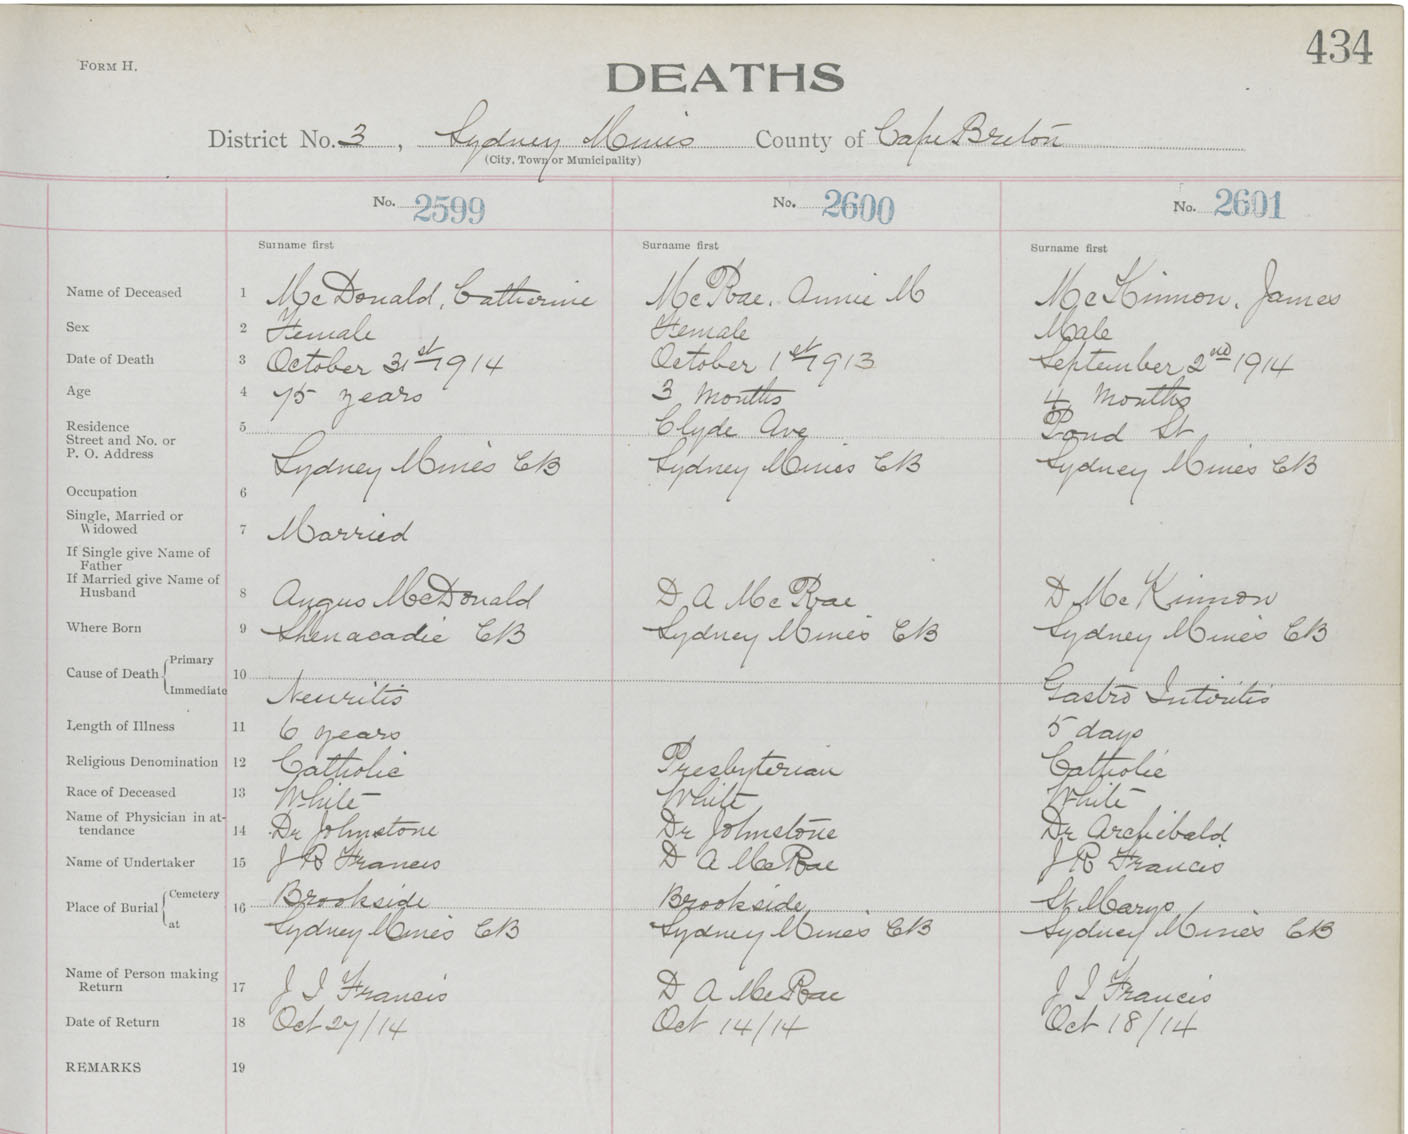 434
FORM H.
DEATHS
District No. 3, Sydney Mines County of Cape Breton
(City, Town or Municipality)
No. 2599 No. 2600 No. 2601
Surname first Surname first Surname first
Name of Deceased 1 McDonald, Catherine McRae, Annie M McKinnon, James
Sex 2 Female Female Male
Date of Death 3 October 31st 1914 October 1st 1913 September 2nd 1914
Age 4 75 years 3 months 4 months
Residence 5 Clyde Ave Pond St
Street and No. or
P. O. Address Sydney Mines CB Sydney Mines CB Sydney Mines CB
Occupation 6
Single, Married or
Widowed 7 Married
If Single give Name of
Father
If Married give Name of
Husband 8 Angus McDonald D A McRae D McKinnon
Where Born 9 Shenacadie CB Sydney Mines CB Sydney Mines CB
Cause of Death Primary 10
Immediate Neuritis Gastro Intiritis
Length of Illness 11 6 years 5 days
Religious Denomination 12 Catholic Presbyterian Catholic
Race of Deceased 13 White White White
Name of Physician in at-
tendance 14 Dr Johnstone Dr Johnstone Dr Archibald
Name of Undertaker 15 J R Francis D A McRae J R Francis
Place of Burial Cemetery 16 Brookside Brookside St Marys
at Sydney Mines CB Sydney Mines CB Sydney Mines CB
Name of Person making
Return 17 J I Francis D A McRae J I Francis
Date of Return 18 Oct 27/14 Oct 14/14 Oct 18/14
REMARKS 19